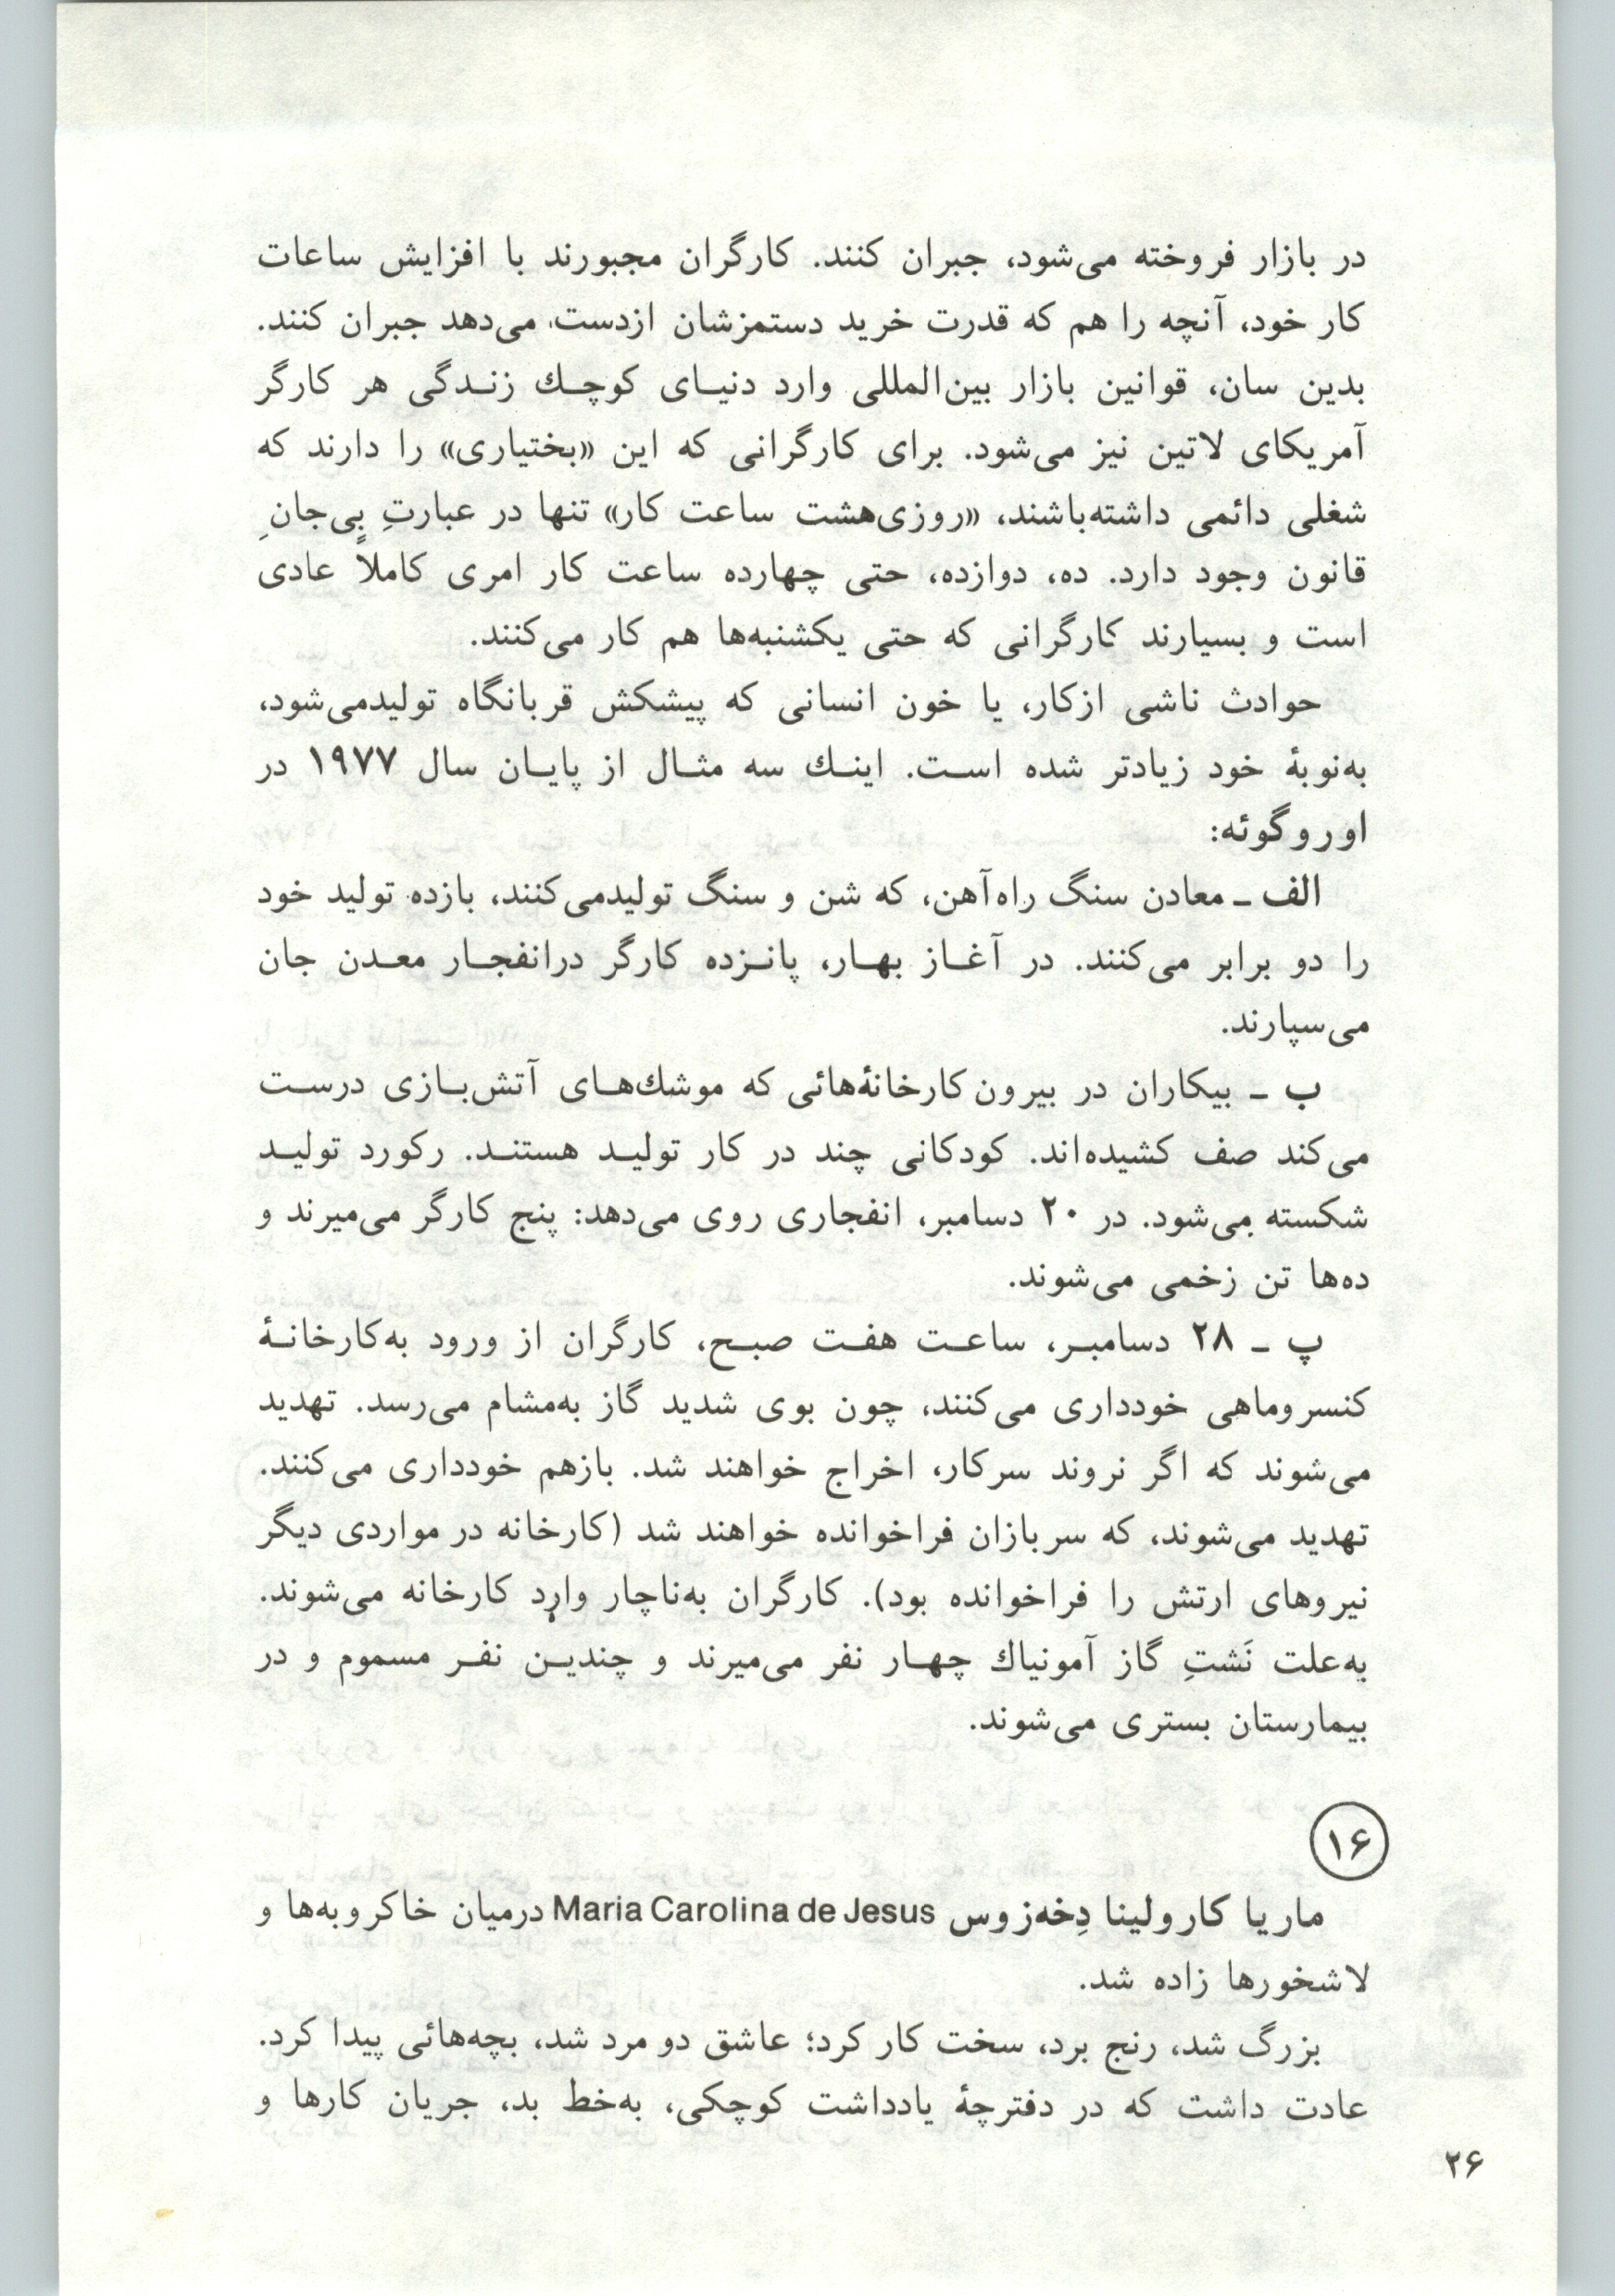 در بازار فروخته می‌شود، جبران کنند. کارگران مجبورند با افزایش ساعات
کار خود، آنچه را هم که قدرت خرید دستمزشان ازدست می‌دهد جبران کنند.
بدین سان، قوانین بازار بین‌المللی وارد دنیـای کوچـك زنـدگی هر کارگر
آمریکای لاتین نیز می‌شود. برای کارگرانی که این «بختیاری» را دارند که
شغلی دائمی داشته‌باشند، «روزی‌هشت ساعت کار» تنها در عبارتِ بی‌جانِ
قانون وجود دارد. ده، دوازده، حتی چهارده ساعت کار امری کاملاً عادی
است و بسیارند کارگرانی که حتی یکشنبه‌ها هم کار می‌کنند.
حوادث ناشی ازکار، یا خون انسانی که پیشکش قربانگاه تولیدمی‌شود،
به‌نوبهٔ خود زیادتر شده اسـت. اینـك سه مثـال از پایـان سال ۱۹۷۷ در
اوروگوئه:
الف ـ معادن سنگ راه‌آهن، که شن و سنگ تولیدمی‌کنند، بازده تولید خود
را دو برابر می‌کنند. در آغـاز بهـار، پانـزده کارگر درانفجـار معـدن جان
می‌سپارند.
ب ـ بیکاران در بیرون کارخانهٔ‌هائی که موشك‌هـای آتش‌بـازی درسـت
می‌کند صف کشیده‌اند. کودکانی چند در کار تولیـد هستنـد. رکورد تولیـد
شکسته می‌شود. در ۲۰ دسامبر، انفجاری روی می‌دهد: پنج کارگر می‌میرند و
ده‌ها تن زخمی می‌شوند.
پ ـ ۲۸ دسامبـر، ساعـت هفـت صبـح، کارگران از ورود به‌کارخانـهٔ
کنسروماهی خودداری می‌کنند، چون بوی شدید گاز به‌مشام می‌رسد. تهدید
می‌شوند که اگر نروند سرکار، اخراج خواهند شد. بازهم خودداری می‌کنند.
تهدید می‌شوند، که سربازان فراخوانده خواهند شد (کارخانه در مواردی دیگر
نیروهای ارتش را فراخوانده بود). کارگران به‌ناچار وارد کارخانه می‌شوند.
به‌علت نَشتِ گاز آمونیاك چهـار نفر می‌میرند و چندیـن نفـر مسموم و در
بیمارستان بستری می‌شوند.
۱۶
ماریا کارولینا دِخه‌زوس Maria Carolina de Jesus درمیان خاکروبه‌ها و
لاشخورها زاده شد.
بزرگ شد، رنج برد، سخت کار کرد؛ عاشق دو مرد شد، بچه‌هائی پیدا کرد.
عادت داشت که در دفترچهٔ یادداشت کوچکی، به‌خط بد، جریان کارها و
۲۶